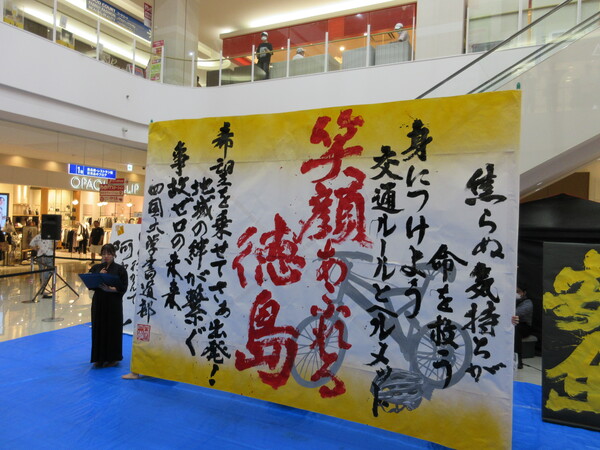 焦らぬ気持ちが
命を救う
身につけよう
交通ルールとヘルメット
笑顔あふれる
徳島
希望を乗せてさぁ出発！
地域の絆が繋ぐ
事故ゼロの未来
四国大学書道部
OPAQUE.CLIP